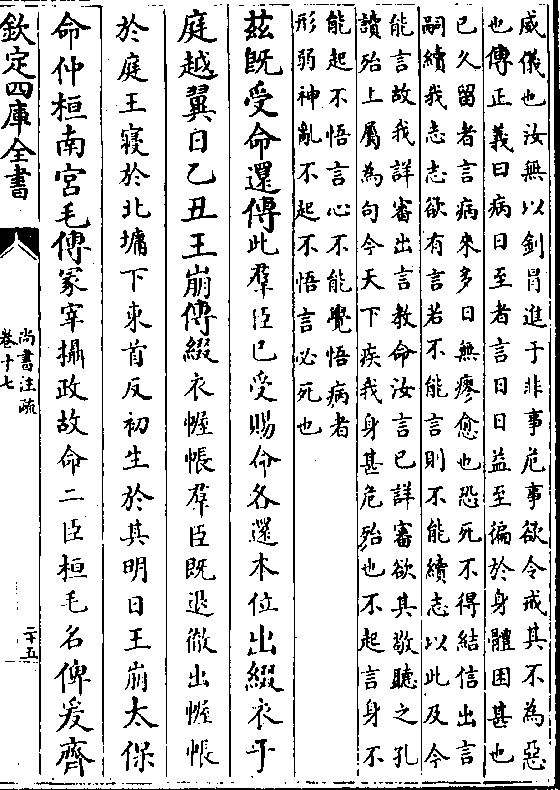 威儀也汝無以釗冒進于非事危事欲令戒其不為惡
也傳正義曰病日至者言日日益至徧於身體困甚也
已久留者言病來多日無瘳愈也恐死不得結信出言
嗣續我志志欲有言若不能言則不能續志以此及今
能言故我詳審出言教命汝言已詳審欲其敬聽之孔
讀殆上屬為句今天下疾我身甚危殆也不起言身不
能起不悟言心不能覺悟病者
形弱神亂不起不悟言必死也
茲既受命還傳此羣臣已受賜命各還本位出綴衣于
庭越翼日乙丑王崩傳綴衣幄帳羣臣既退徹出幄帳
於庭王寢於北墉下東首反初生於其明日王崩太保
命仲桓南宮毛傳冢宰攝政故命二臣桓毛名俾爰齊
欽定四庫全書
尚書注疏
卷十七
二十五